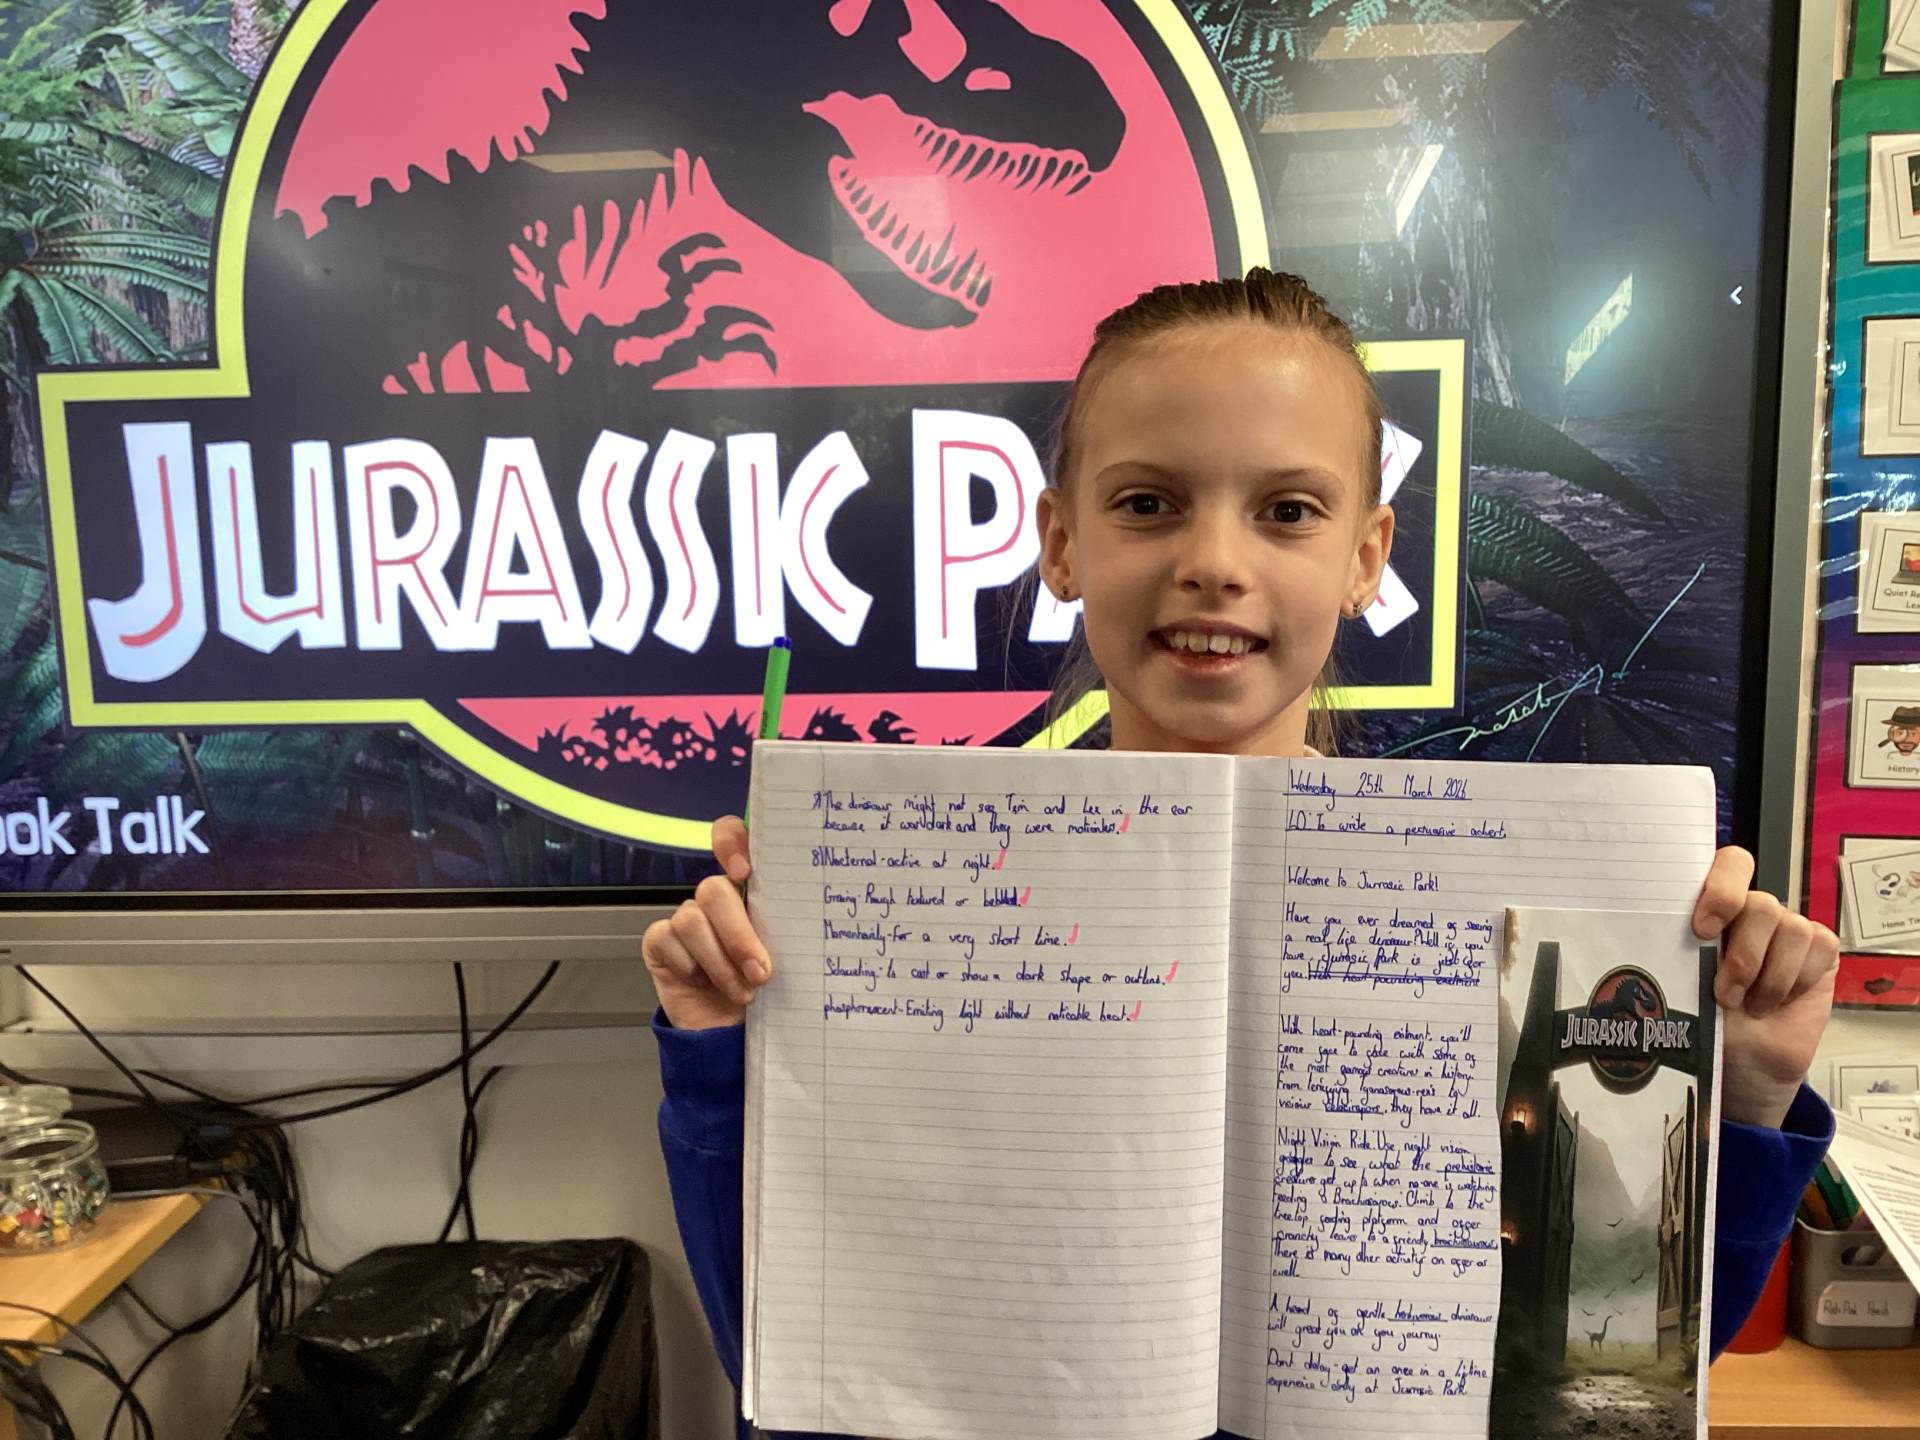 JURASSIC PARK
ook Talk
7) The dinosaur might not see Tim and Lex in the car
because it was dark and they were motionless.
8) Nocternal - active at night.
Grainy - Rough textured or
Momentarily - for a very short time.
to cast or show a dark shape or outline.
phosphorescent - Emiting light without noticable heat.
Wednesday 25th March 2026
LO: To write a persuasive advert.
Welcome to Jurrasic Park!
Have you ever dreamed of seeing
a real life dinosaur? Well if you
have, Jurasic Park is just for
you. With heart-pounding exeitment
With heart-pounding exitment, you'll
come face to face with some of
the most famous creatures in history.
From terrifying to
vicious they have it all.
Night Vision Ride: Use night vision
goggles to see what the prehistoric
creatures get up to when no-one is watching.
Feeding a Brachiosaurus: Climb to the
treetop feeding platform and offer
crunchy leaves to a friendly
There is many other activitys on offer as
well.
A head of gentle dinosaurs
will great you on you journy.
Dont delay - get an once in a lifetime
experience only at Jurrasic Park
JURASSIC PARK
Quiet Re
Lea
History
Home Tim